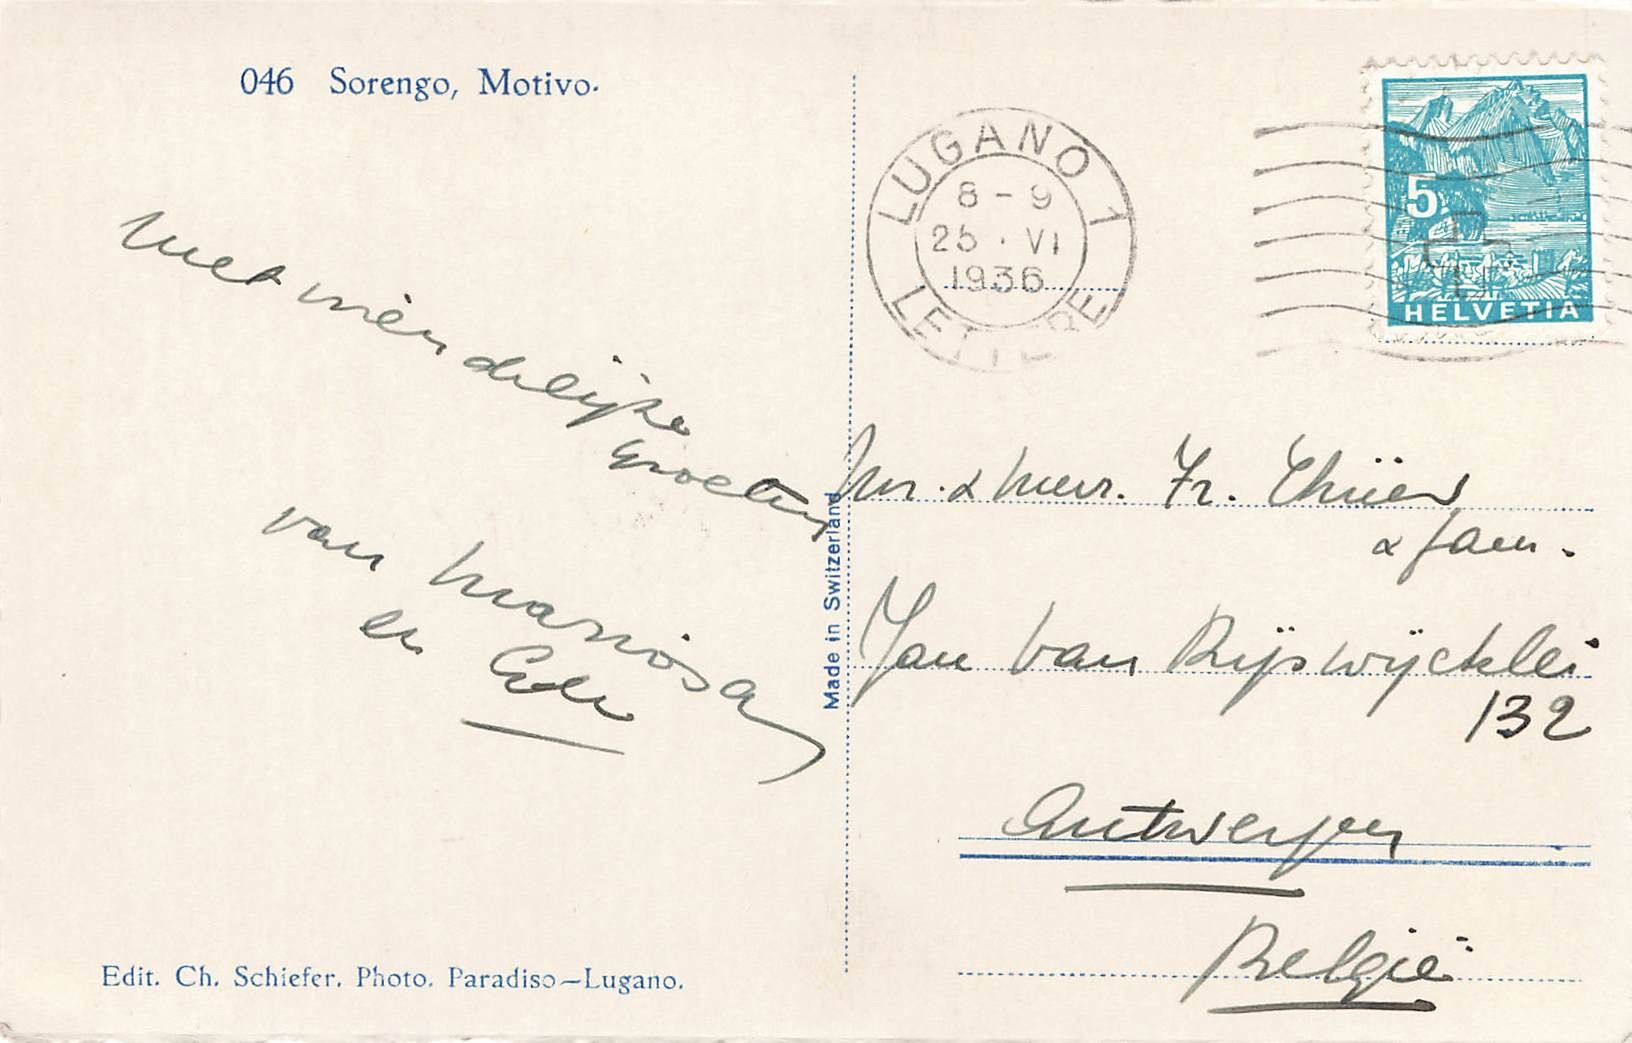 046 Sorengo, Motivo.
LUGANO 1
8 - 9
25 · VI
1936
LETTERE
5
HELVETIA
met vriendelijke
Groeten
van
en
Mr. & Mevr. Fr.
& fam.
Jan Van Rijswijcklei
132
Antwerpen
België
Made in Switzerland
Edit. Ch. Schiefer. Photo. Paradiso—Lugano.